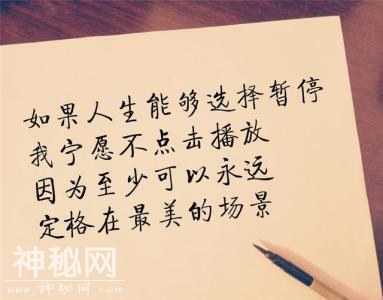 如果人生能够选择暂停
我宁愿不点击播放
因为至少可以永远
定格在最美的场景
神秘网
www.神秘网.com